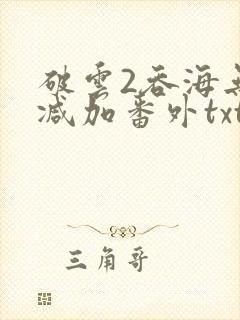 破云2吞海无
减加番外txt
三角哥